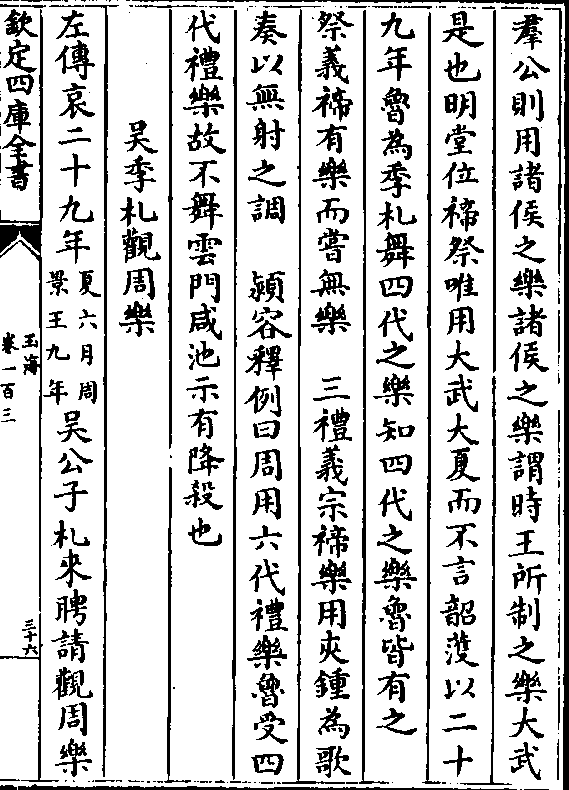 羣公則用諸侯之樂諸侯之樂謂時王所制之樂大武
是也明堂位禘祭唯用大武大夏而不言韶濩以二十
九年魯為季札舞四代之樂知四代之樂魯皆有之
祭義禘有樂而嘗無樂 三禮義宗禘樂用夾鍾為歌
奏以無射之調 潁容釋例曰周用六代禮樂魯受四
代禮樂故不舞雲門咸池示有降殺也
吳季札觀周樂
左傳哀二十九年夏六月周景王九年吳公子札來聘請觀周樂
欽定四庫全書
玉海
卷一百三
三十六